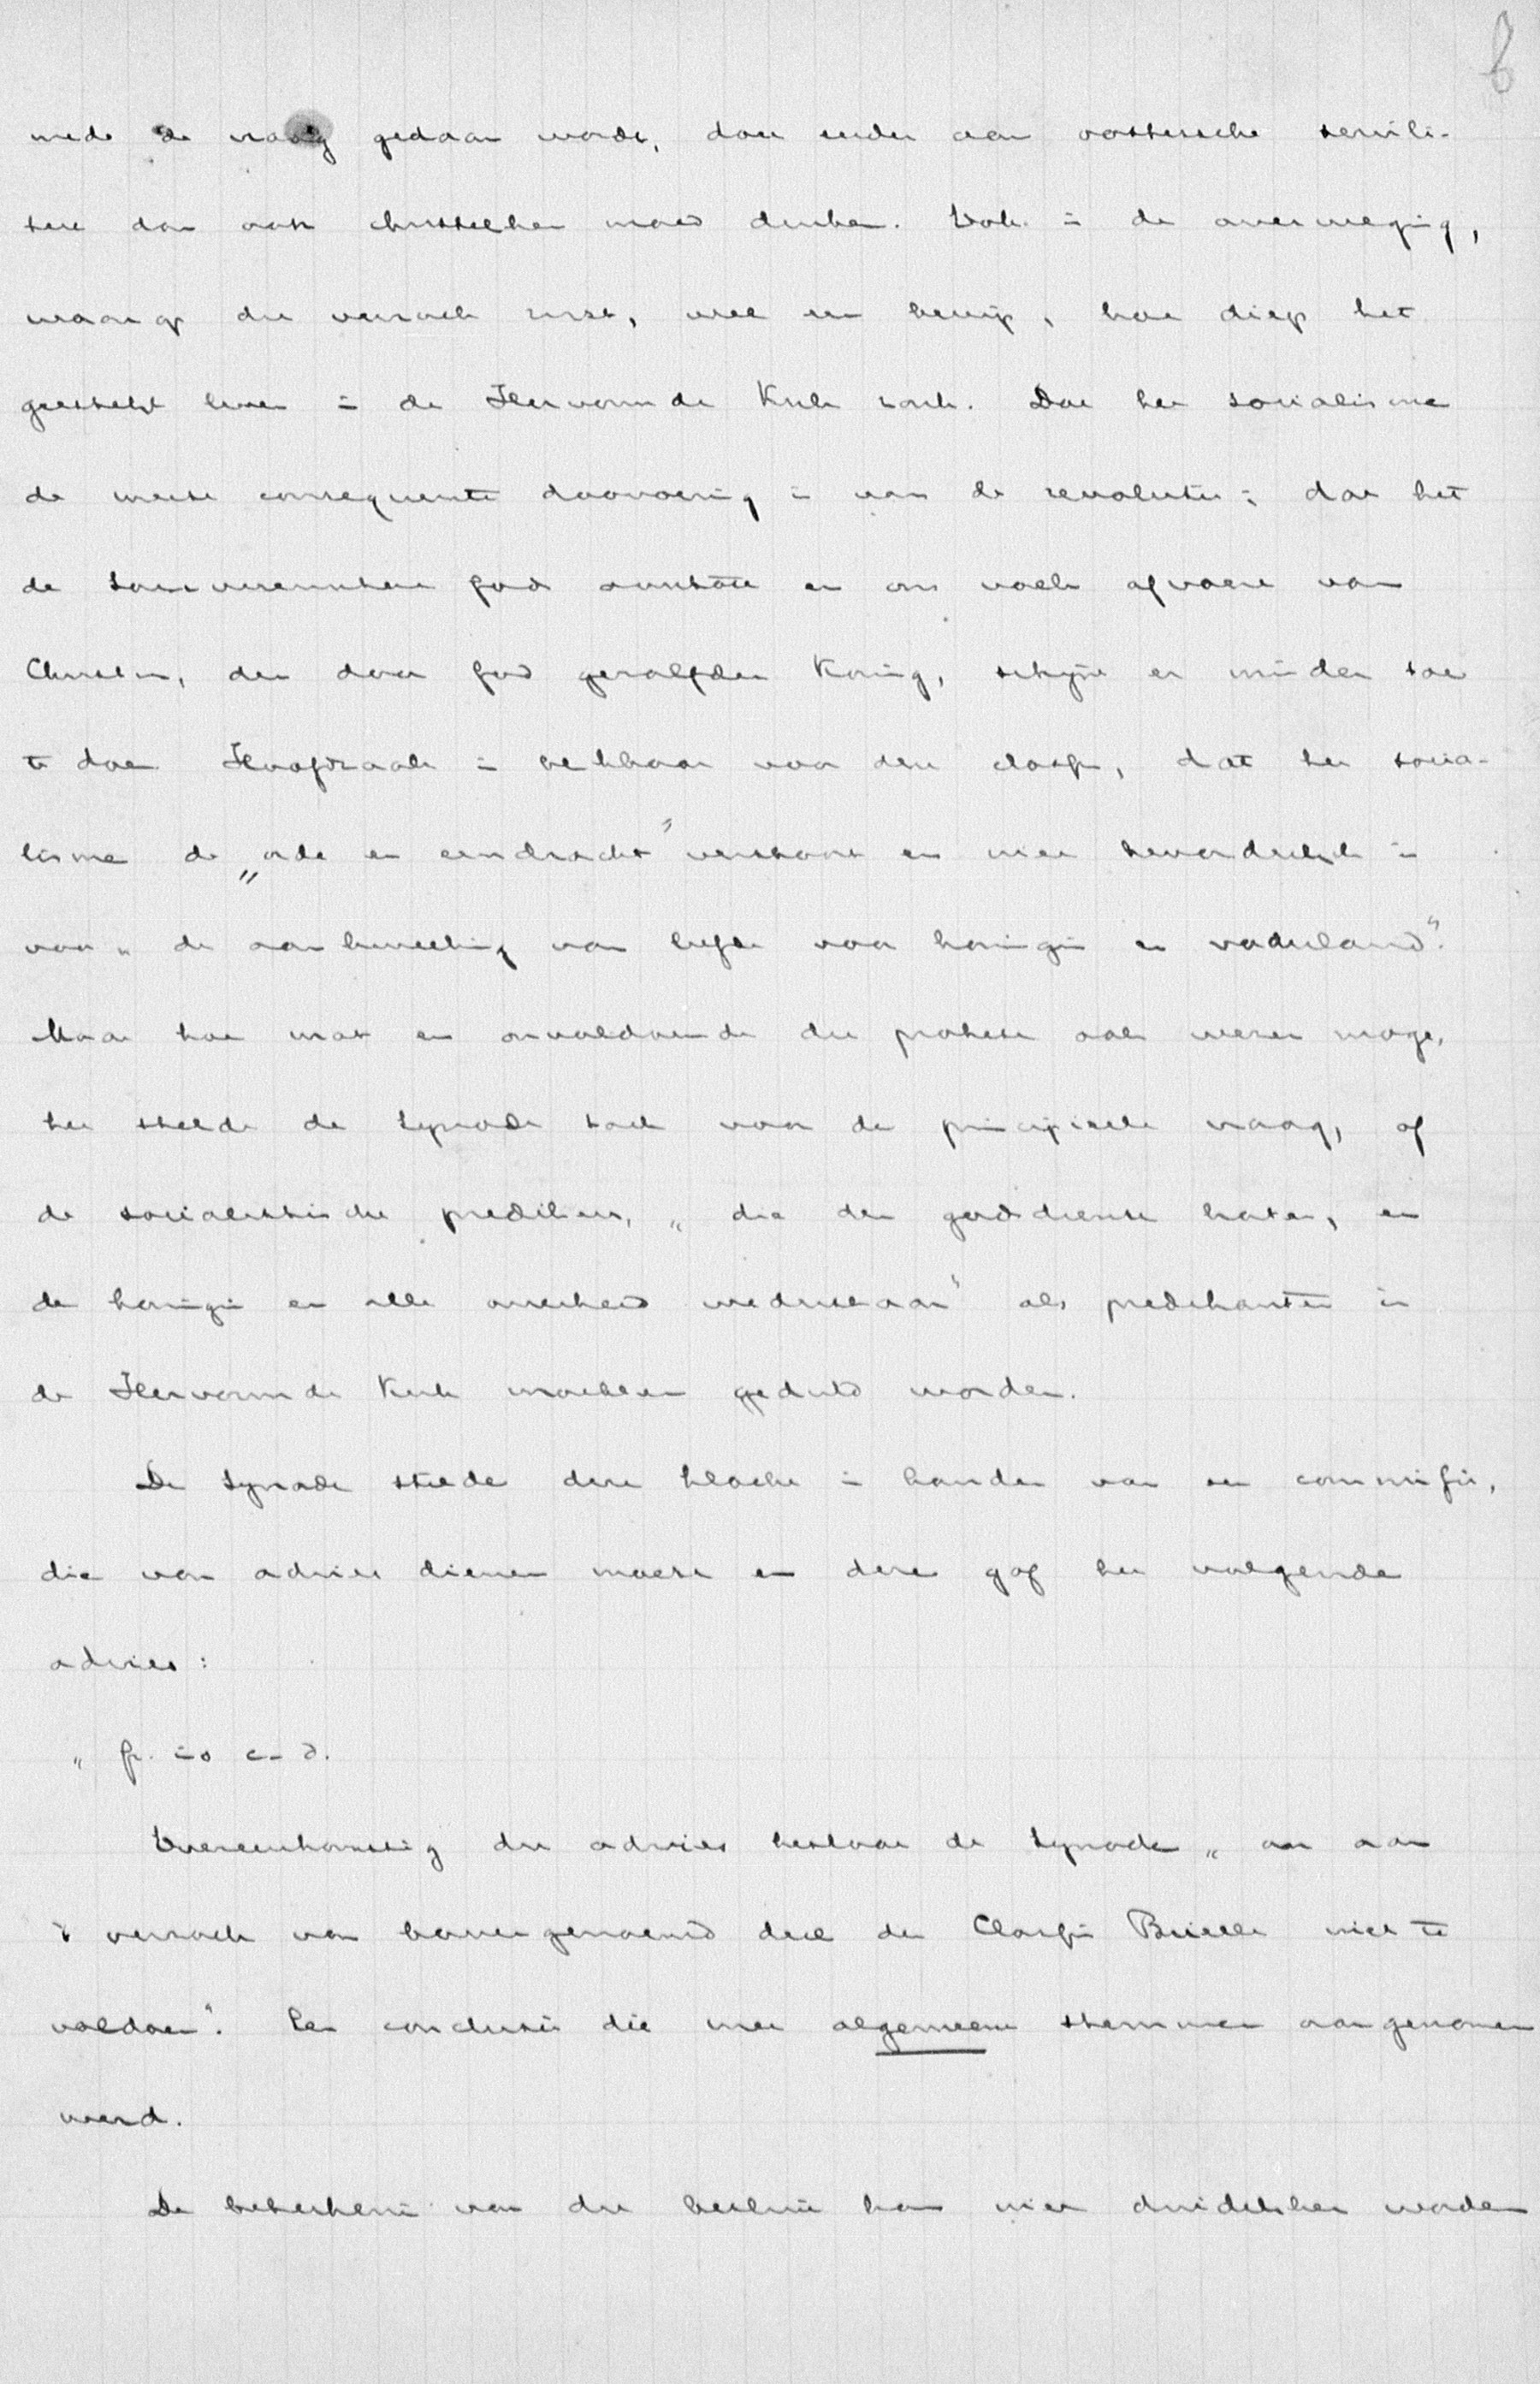 6
mede de vraag gedaan wordt, doet eerder aan oostersche servili-
teit dan aan christelijken moed denken. Ook is de overweging,
waarop dit verzoek rust, wel een bewijs, hoe diep het
geestelijk leven in de Hervormde Kerk zonk. Dat het socialisme
de meest consequente doorvoering is van de revolutie; dat het
de souvereiniteit Gods aantast en ons volk afvoert van
Christus, den door God gezalfden Koning, schijnt er minder toe
te doen. Hoofdzaak is blijkbaar voor deze classis, dat het socia-
lisme de „orde en eendracht" verstoort en niet bevorderlijk is
voor „de aankweeking van liefde voor koningin en vaderland".
Maar hoe mat en onvoldoende dit protest ook wezen moge,
het stelde de Synode toch voor de principieele vraag, of
de socialistische predikers, „die den godsdienst haten, en
de koningin en alle overheid wederstaan" als predikanten in
de Hervormde Kerk mochten geduld worden.
De Synode stelde deze klacht in handen van een commissie,
die van advies dienen moest en deze gaf het volgende
advies:
Overeenkomstig dit advies besloot de Synode „om aan
't verzoek van bovengenoemd deel der Classis Brielle niet te
voldoen". Een conclusie die met algemeene stemmen aangenomen
werd.
De beteekenis van dit besluit kan niet duidelijker worden